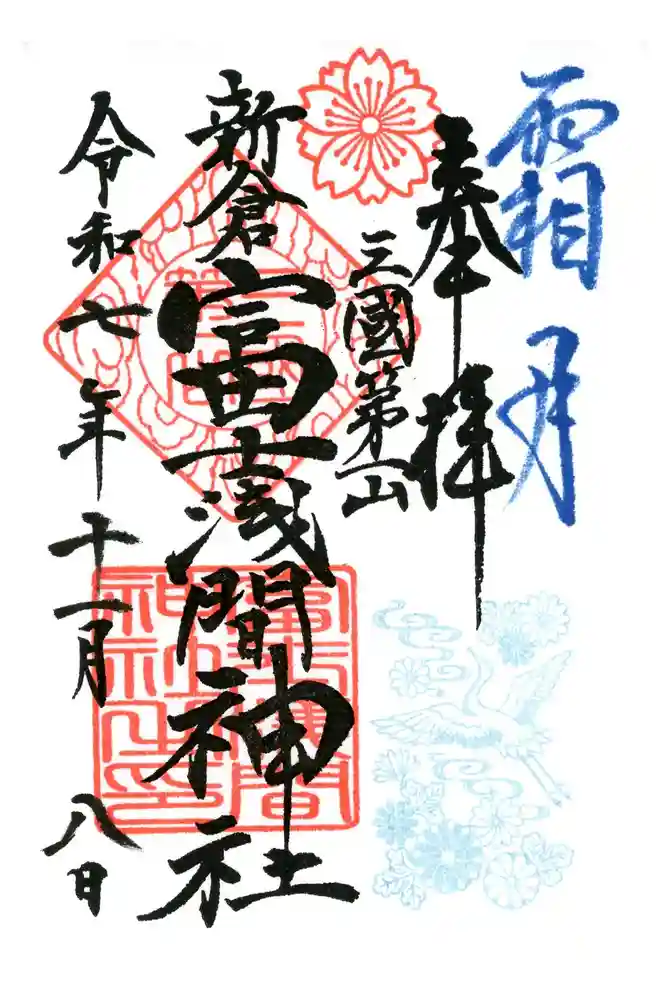 霜月
奉拝
三國第一山
新倉富士浅間神社
令和七年十一月八日
冨士淺間
神社之印